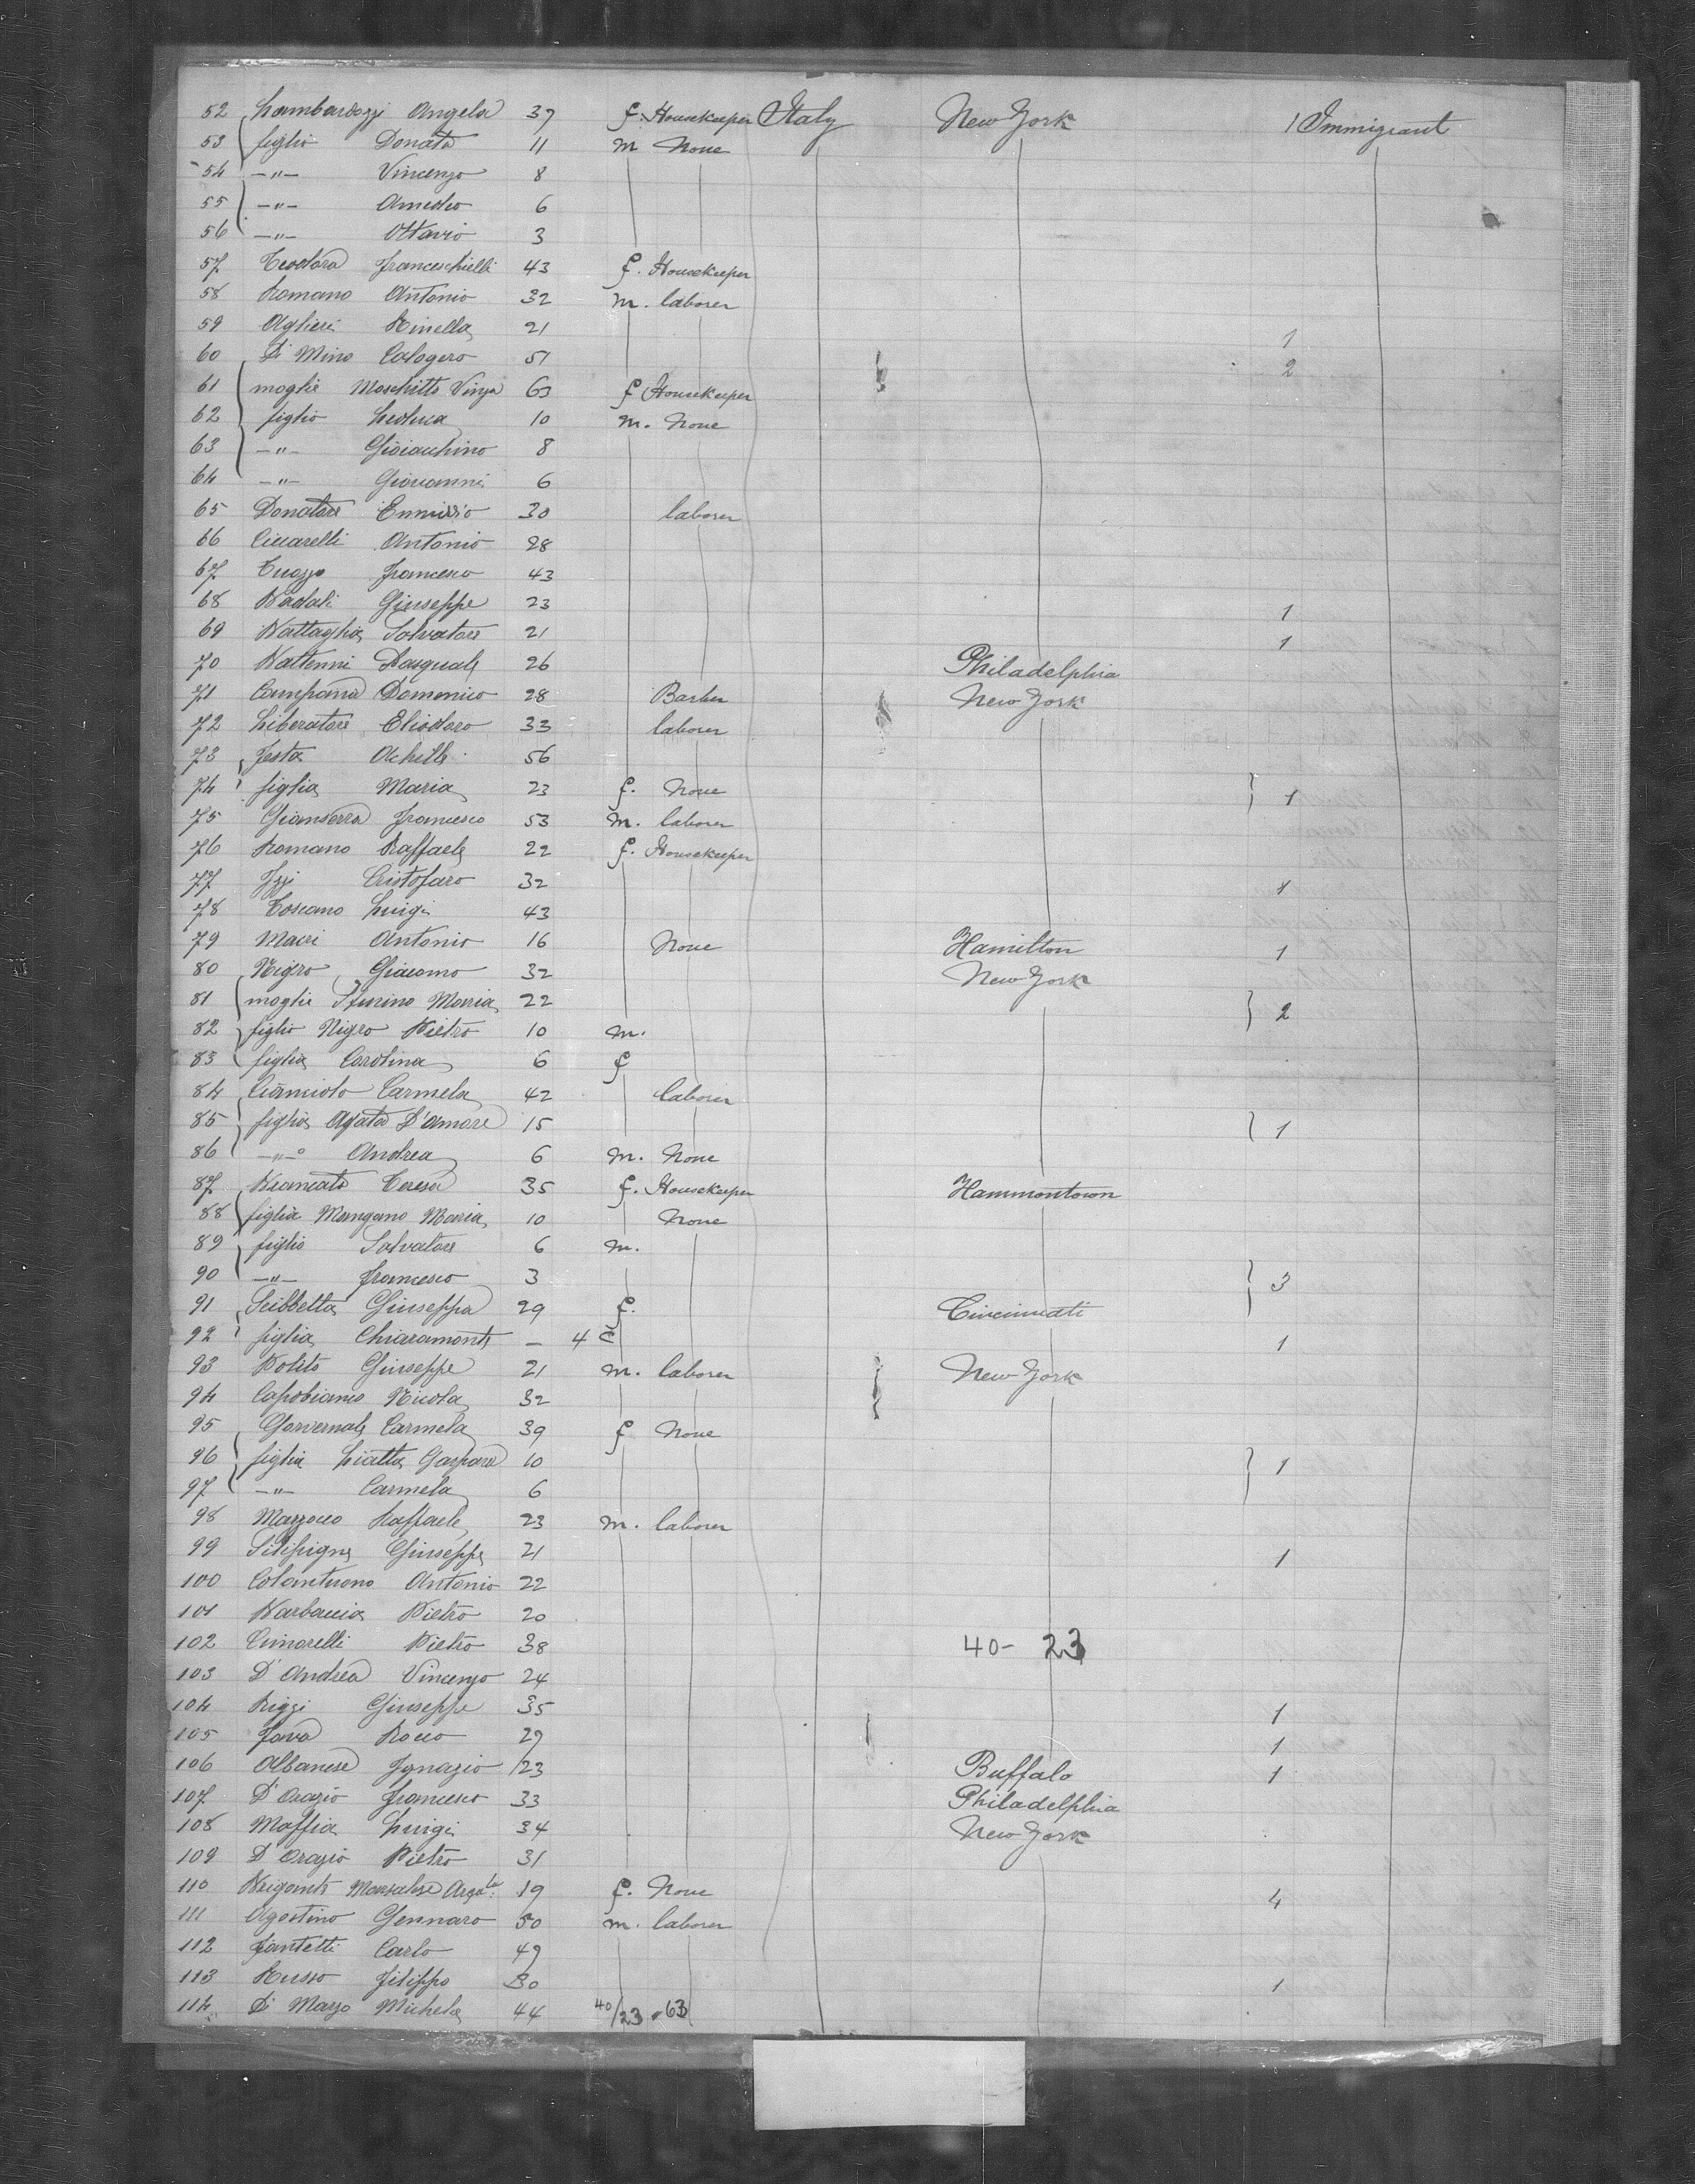 52 Lombardozzi Angela 37 f. Housekeeper Italy New York 1 Immigrant
53 figlio Donato 11 m None
54 -"- Vincenzo 8
55 -"- Amedeo 6
56 -"- Ottavio 3
57 Teodora Franceschielli 43 f. Housekeeper
58 Romano Antonio 32 m. laborer
59 Aglieri Rinella 21 1
60 Di Mino Calogero 51 2
61 moglie Moschitto Vinza 63 f Housekeeper
62 figlio Leoluca 10 m. None
63 -"- Gioiacchino 8
64 -"- Giovanni 6
65 Donatore 30 laborer
66 Ciccarelli Antonio 28
67 Tuozzo Francesco 43
68 Badali Giuseppe 23 1
69 Battaglia Salvatore 21 1
70 Battenni Pasquale 26 Philadelphia
71 Campana Domenico 28 Barber New York
72 Liberatore Eliodoro 33 laborer
73 Testa Achille 56
74 figlia Maria 23 f. None 1
75 Gianserra Francesco 53 m. laborer
76 Romano Raffaele 22 f. Housekeeper
77 Izzi Cristofaro 32 1
78 Toscano Luigi 43
79 Macri Antonio 16 None Hamilton 1
80 Nigro Giacomo 32 New York
81 moglie Sturino Maria 22 2
82 figlio Nigro Pietro 10 m.
83 figlia Carolina 6 f
84 Cianciolo Carmela 42 laborer
85 figlia Agata D'Amore 15 1
86 -"-o Andrea 6 m. None
87 Brancato Teresa 35 f. Housekeeper Hammontown
88 figlia Mangano Maria 10 None
89 figlio Salvatore 6 m.
90 -"- Francesco 3 3
91 Scibbetta Giuseppa 29 f. Cincinnati
92 figlia Chiaramonte - 4 1
93 Polito Giuseppe 21 m. laborer New York
94 Capobianco Nicola 32
95 Governale Carmela 39 f None
96 figlia Liatta Gaspara 10 1
97 -"- Carmela 6
98 Mazzocco Raffaele 23 m. laborer
99 Sitipigna Giuseppe 21 1
100 Colantuono Antonio 22
101 Barbaccia Pietro 20
102 Cimorelli Pietro 38 40- 23
103 D'Andrea Vincenzo 24
104 Rizzi Giuseppe 35 1
105 Fava Rocco 29 1
106 Albanese Ignazio 23 Buffalo 1
107 D'Orazio Francesco 33 Philadelphia
108 Maffia Luigi 34 New York
109 D'Orazio Pietro 31
110 Brigante 19 f. None 4
111 Agostino Gennaro 50 m. laborer
112 Fantetti Carlo 49
113 Russo Filippo 30 1
114 Di Marzo Michele 44 40/23 63